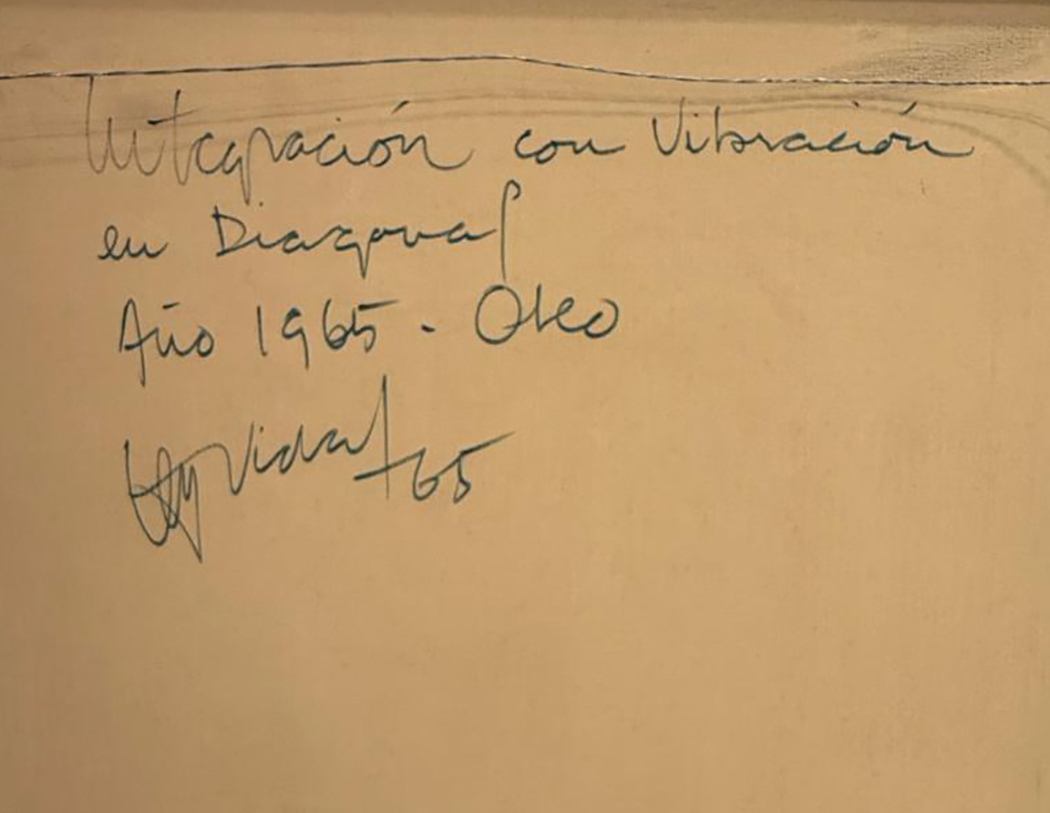 Integración con Vibración
en Diagonal
Año 1965 . Oleo
Vidal 65